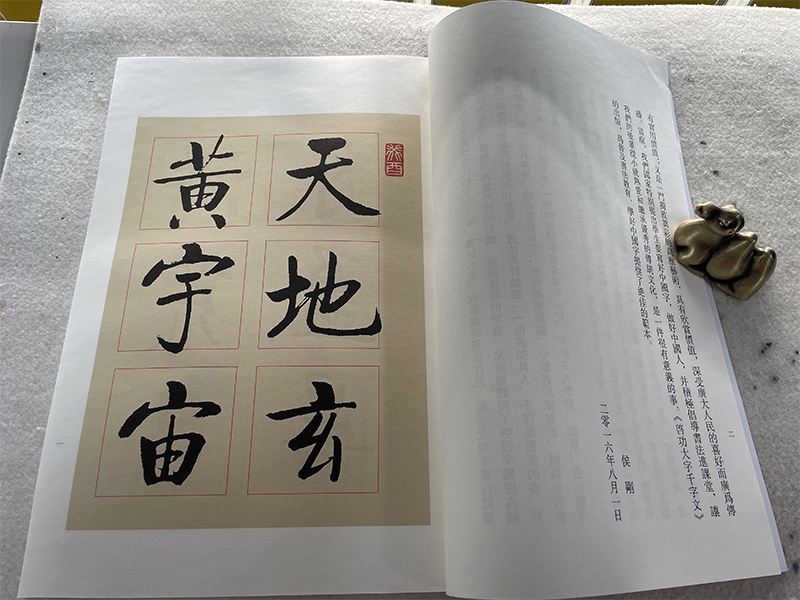 二
有實用價值；又是一門獨放異彩的造型藝術，具有欣賞價值，深受廣大人民的喜好而廣爲傳
播。當前，我們國家特別提出學生要寫好中國字，做好中國人，并積極倡導書法進課堂，讓
我們的後輩從小就熱愛和繼承優秀的傳統文化，是一件很有意義的事。《啓功大字千字文》
的出版，爲普及書法教育、學好中國字提供了最佳的範本。
侯剛
二零一六年八月一日
癸酉
天地玄
黃宇宙